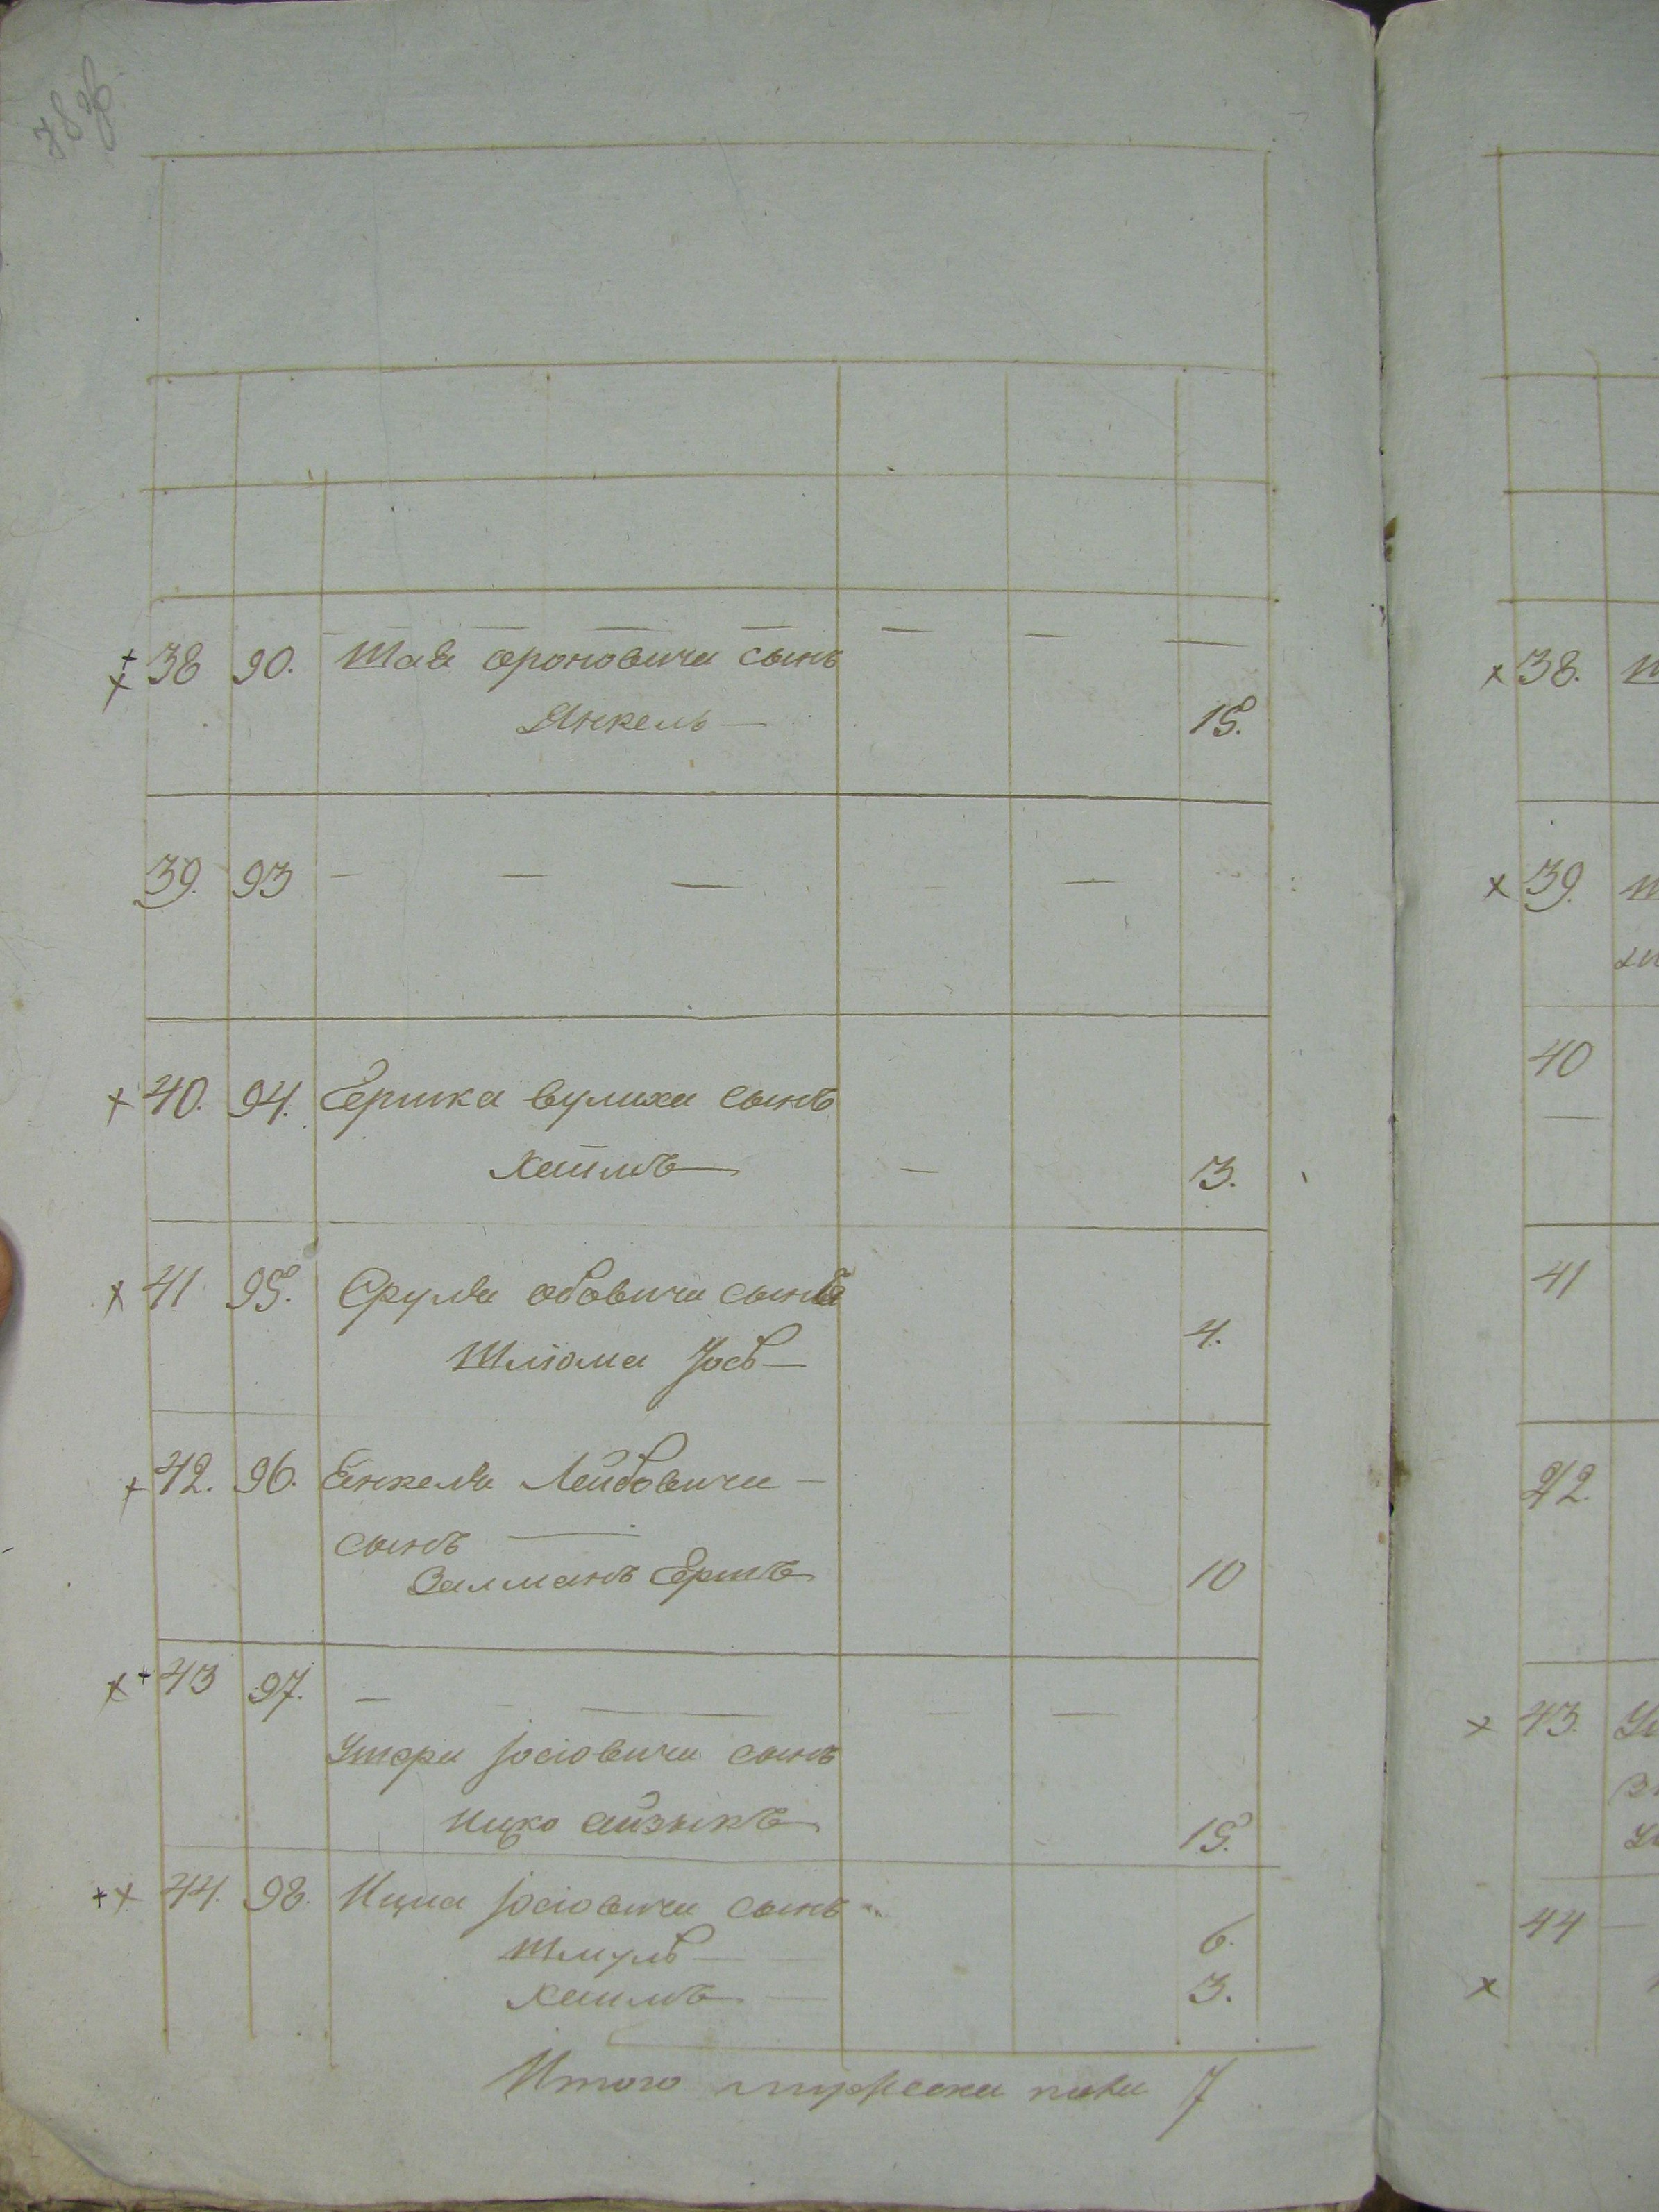 38 90. Шаи ароновича сынъ
Янкель 15.
39. 93
40. 94. Ершка вулиха сынъ
Хаимъ 3.
41 95. Сруля абовича сынъ
Шліома Іось 4.
42. 96. Енкеля Лейбовича
сынъ
Залманъ Ершъ 10
43 97.
Умэри Іосіовича сынъ
Ицко айзыкъ 15.
44. 98. Ицка Іосіовича сынъ
Шмуль 6.
Хаимъ 3.
Итого мужеска пола 7
38.
39.
40
41
42.
43.
44